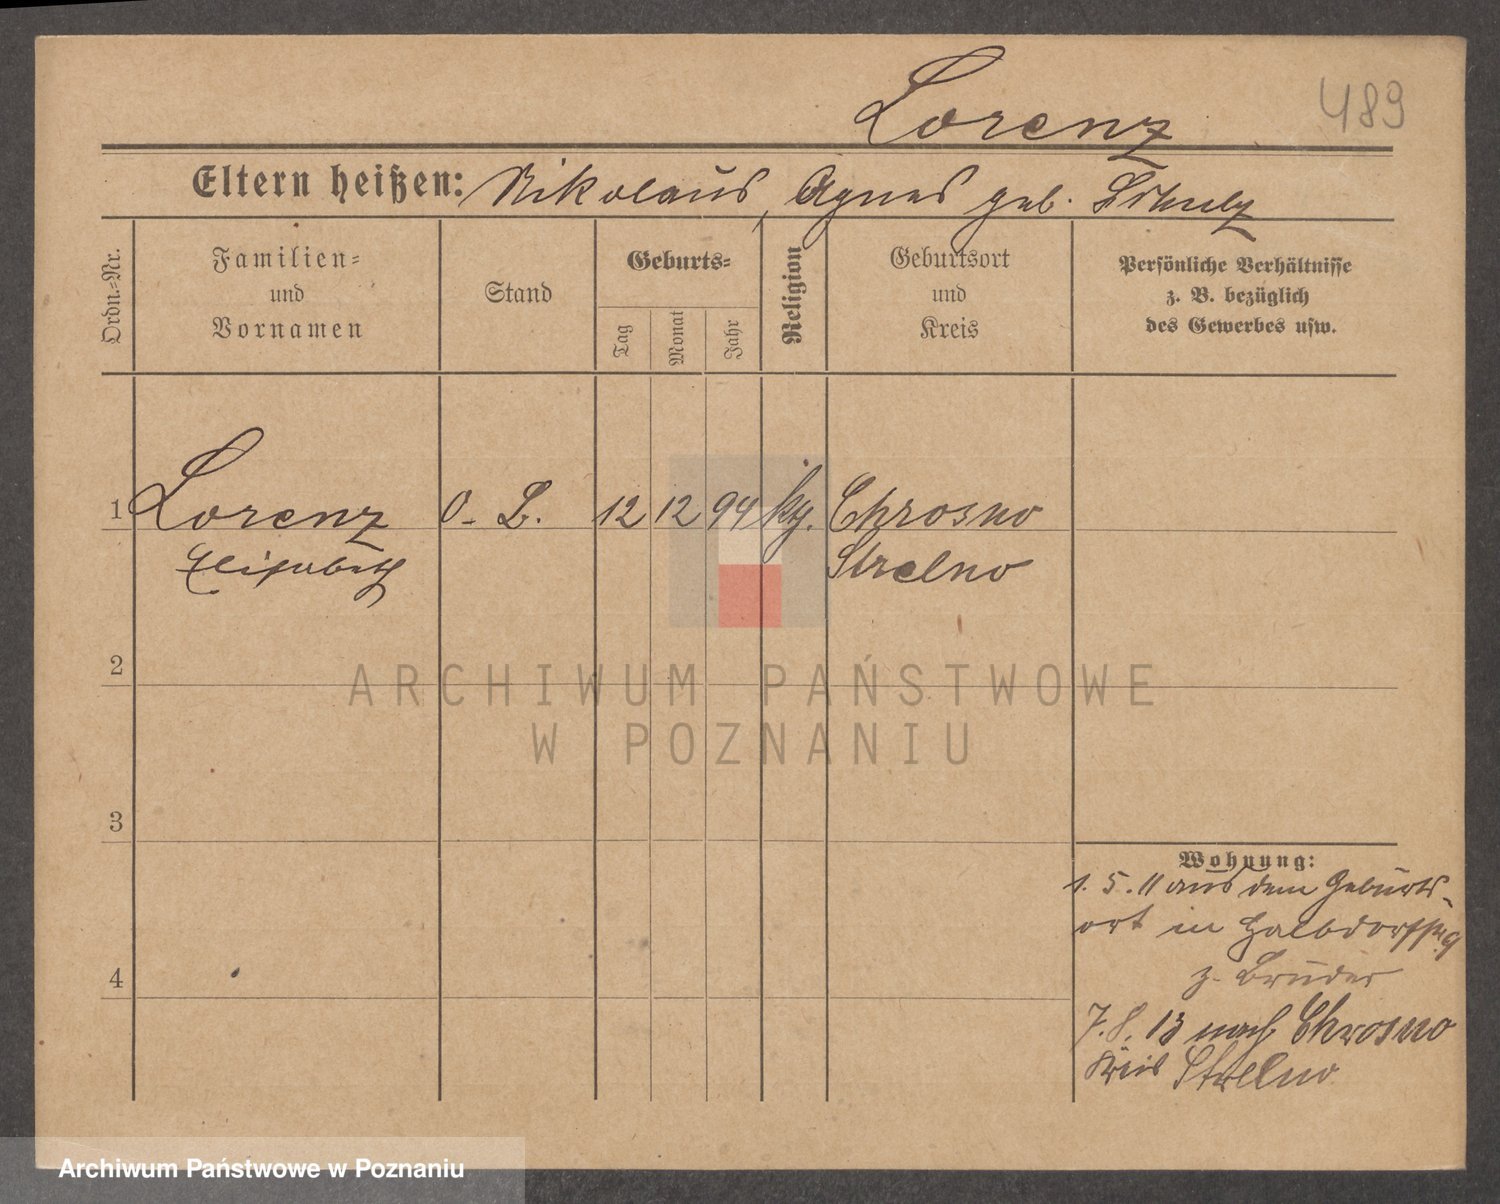 Lorenz
489
Eltern heißen: Nikolaus, Agnes geb. Schulz
Ordn.=Nr.
Familien=
und
Vornamen
Stand
Geburts=
Tag
Monat
Jahr
Religion
Geburtsort
und
Kreis
Persönliche Verhältnisse
z. B. bezüglich
des Gewerbes usw.
1 Lorenz O. L. 12 12 94 kg. Chrosno
Elisabeth Strelno
2
ARCHIWUM PAŃSTWOWE
W POZNANIU
3
Wohnung:
1. 5. 11 aus dem Geburts-
ort in Halbdorfstr. 9
z. Bruder
4
7. 8. 13 nach Chrosno
Kreis Strelno
Archiwum Państwowe w Poznaniu